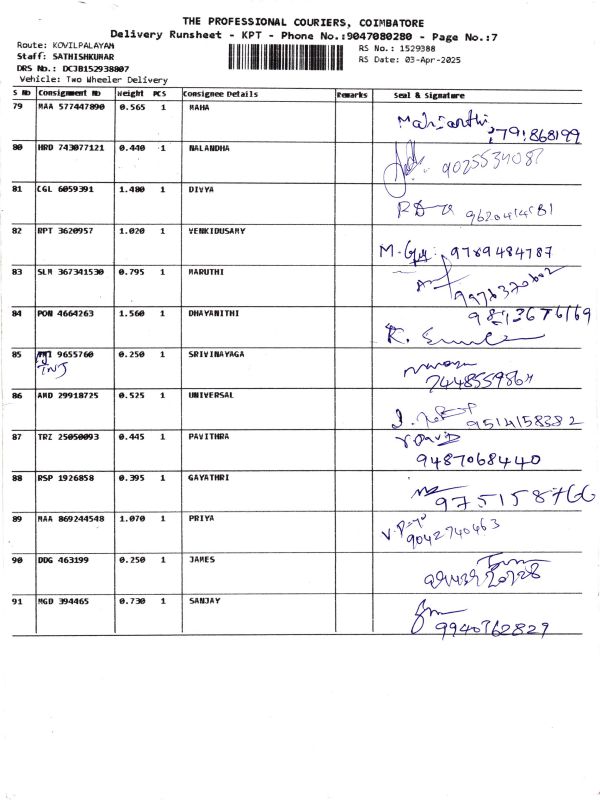 THE PROFESSIONAL COURIERS, COIMBATORE
Delivery Runsheet - KPT - Phone No.:9047080280 - Page No.:7
Route: KOVILPALAYAM
RS No.: 1529388
Staff: SATHISHKUMAR
RS Date: 03-Apr-2025
DRS No.: DCJB152938807
Vehicle: Two Wheeler Delivery
S No Consignment No Weight PCS Consignee Details Remarks Seal & Signature
79 MAA 577447890 0.565 1 MAHA
80 HRD 743077121 0.440 1 NALANDHA
81 CGL 6059391 1.480 1 DIVYA
82 RPT 3620957 1.020 1 VENKIDUSAMY
M. 9789484787
83 SLM 367341530 0.795 1 MARUTHI
84 PON 4664263 1.560 1 DHAYANITHI
85 9655760 0.250 1 SRIVINAYAGA
TNJ
86 AMD 29918725 0.525 1 UNIVERSAL
9514158382
87 TRZ 25050093 0.445 1 PAVITHRA
9487068440
88 RSP 1926858 0.395 1 GAYATHRI
975158766
89 MAA 869244548 1.070 1 PRIYA
9042740463
90 DDG 463199 0.250 1 JAMES
91 MGD 394465 0.730 1 SANJAY
9940362829